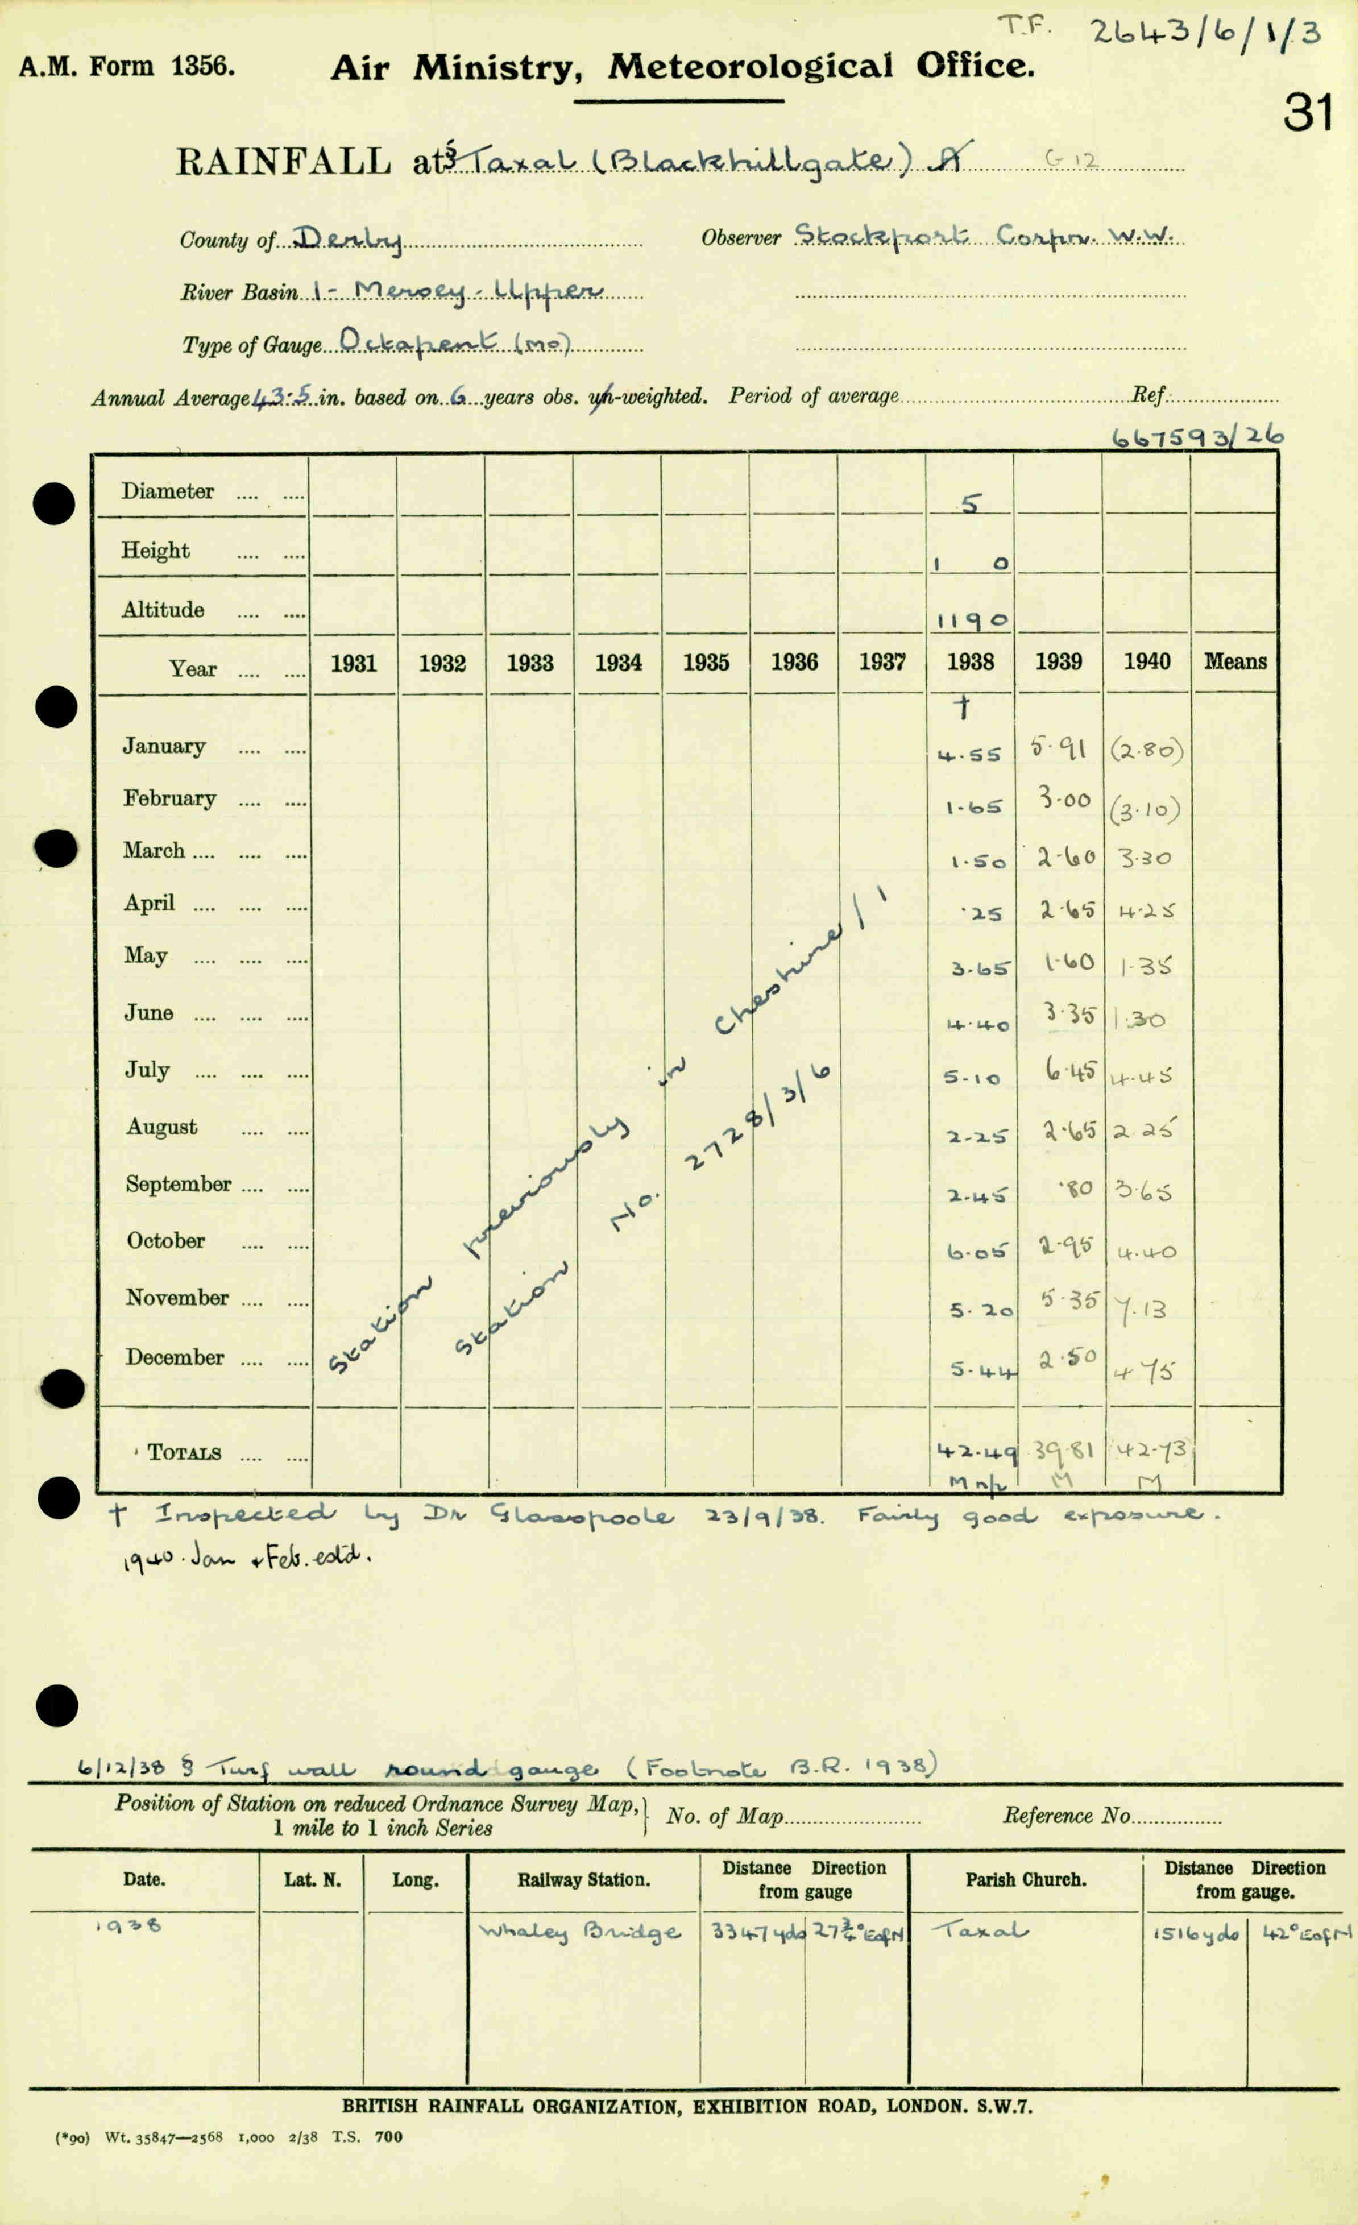 T.F. 2643/6/1/3
A.M. Form 1356. Air Ministry, Meteorological Office.
31
RAINFALL at § Taxal (Blackhillgate) A G12
County of Derby Observer Stockport Corpn. W.W.
River Basin 1 - Mersey - Upper
Type of Gauge Octapent (Mo)
Annual Average 43.5 in. based on 6 years obs. un-weighted. Period of average Ref.
667593/26
Diameter .... .... 5
Height .... .... 1 0
Altitude .... .... 1190
Year .... .... 1931 1932 1933 1934 1935 1936 1937 1938 1939 1940 Means
†
January .... .... 4.55 5.91 (2.80)
February .... .... 1.65 3.00 (3.10)
March .... .... .... 1.50 2.60 3.30
April .... .... .... .25 2.65 4.25
May .... .... .... 3.65 1.60 1.35
June .... .... .... 4.40 3.35 1.30
July .... .... .... 5.10 6.45 4.45
August .... .... 2.25 2.65 2.25
September .... .... 2.45 .80 3.65
October .... .... 6.05 2.95 4.40
November .... .... 5.20 5.35 7.13
December .... .... 5.44 2.50 4.75
Station previously in Cheshire / 1
Station No. 2728/3/6
TOTALS .... .... 42.49 39.81 42.73
M n/p M M
† Inspected by Dr Glasspoole 23/9/38. Fairly good exposure.
1940. Jan + Feb. estd.
6/12/38 § Turf wall round gauge (Footnote B.R. 1938)
Position of Station on reduced Ordnance Survey Map,} No. of Map Reference No.
1 mile to 1 inch Series
Date. Lat. N. Long. Railway Station. Distance Direction from gauge Parish Church. Distance Direction from gauge.
1938 Whaley Bridge 3347 yds 27¾° E of N Taxal 1516 yds 42° E of N
BRITISH RAINFALL ORGANIZATION, EXHIBITION ROAD, LONDON. S.W.7.
(*90) Wt. 35847—2568 1,000 2/38 T.S. 700